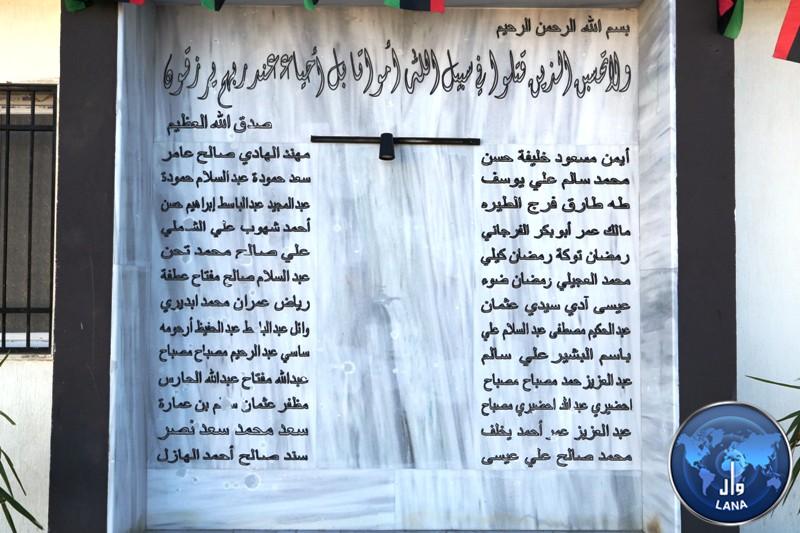 بسم الله الرحمن الرحيم
ولا تحسبن الذين قتلوا في سبيل الله أمواتا بل أحياء عند ربهم يرزقون
صدق الله العظيم
أيمن مسعود خليفة حسن
محمد سالم علي يوسف
طه طارق فرج الطيره
مالك عمر أبوبكر الفرجاني
رمضان توكة رمضان كيلي
محمد العجيلي رمضان ضوء
عيسى آدي سيدي عثمان
عبدالحكيم مصطفى عبد السلام علي
باسم البشير علي سالم
عبد العزيز حمد مصباح مصباح
احضيري عبد الله احضيري مصباح
عبد العزيز عمر أحمد يخلف
محمد صالح علي عيسى
مهند الهادي صالح عامر
سعد حمودة عبد السلام حمودة
عبدالمجيد عبدالباسط إبراهيم حسن
أحمد شهوب علي الشملي
علي صالح محمد تحن
عبد السلام صالح مفتاح عطفة
رياض عمران محمد ابديري
وائل عبدالباسط عبدالحفيظ أرحومه
ساسي عبد الرحيم مصباح مصباح
عبدالله مفتاح عبدالله الحارس
مظفر عثمان سالم بن عمارة
سعد محمد سعد نصر
سند صالح أحمد الهازل
وال
LANA